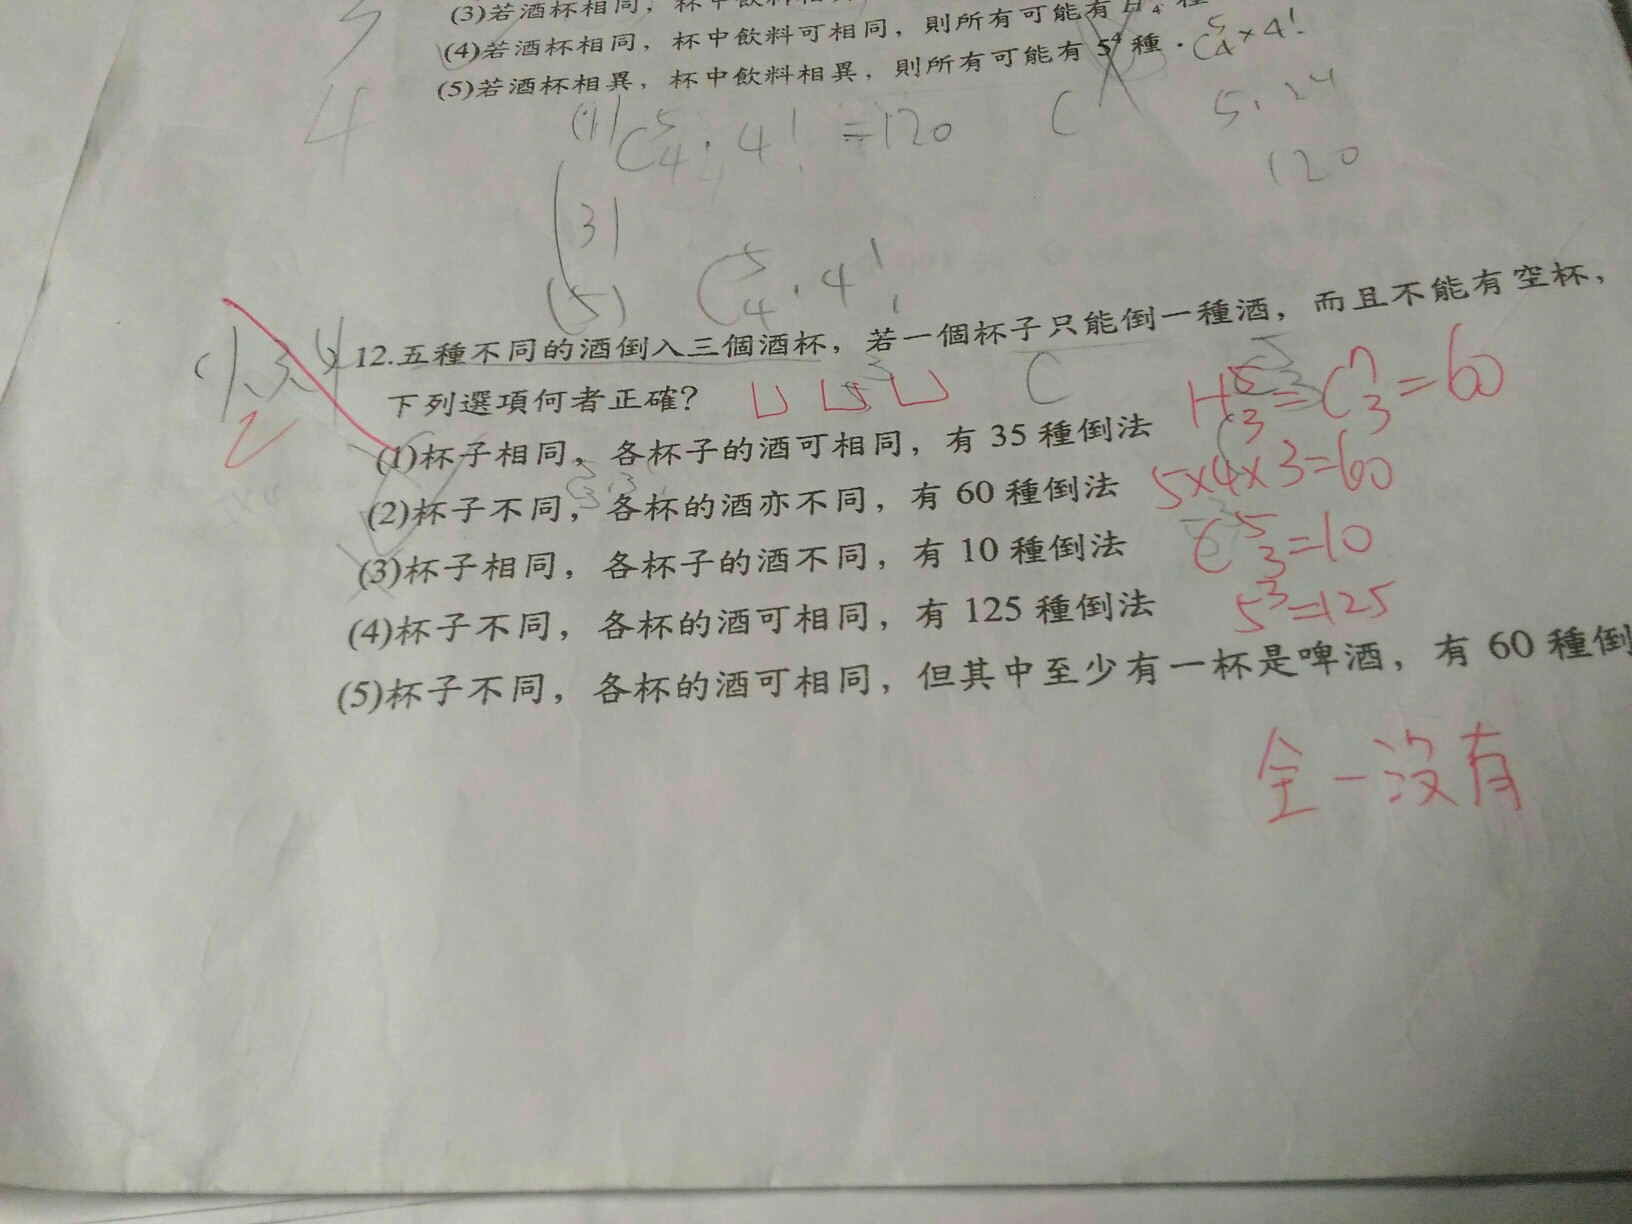 (3)若酒杯相同，杯中飲料相
(4)若酒杯相同，杯中飲料可相同，則所有可能有 H 4 種
(5)若酒杯相異，杯中飲料相異，則所有可能有 5^4 種．C^5_4×4!
5.24
(1) C^5_4 . 4! =120
120
(3)
(5) C^5_4 . 4!
12.五種不同的酒倒入三個酒杯，若一個杯子只能倒一種酒，而且不能有空杯，
下列選項何者正確?
(1)杯子相同，各杯子的酒可相同，有 35 種倒法 H^5_3=C^7_3=60
(2)杯子不同，各杯的酒亦不同，有 60 種倒法 5×4×3=60
(3)杯子相同，各杯子的酒不同，有 10 種倒法 C^5_3=10
(4)杯子不同，各杯的酒可相同，有 125 種倒法 5^3=125
(5)杯子不同，各杯的酒可相同，但其中至少有一杯是啤酒，有 60 種倒
全－沒有